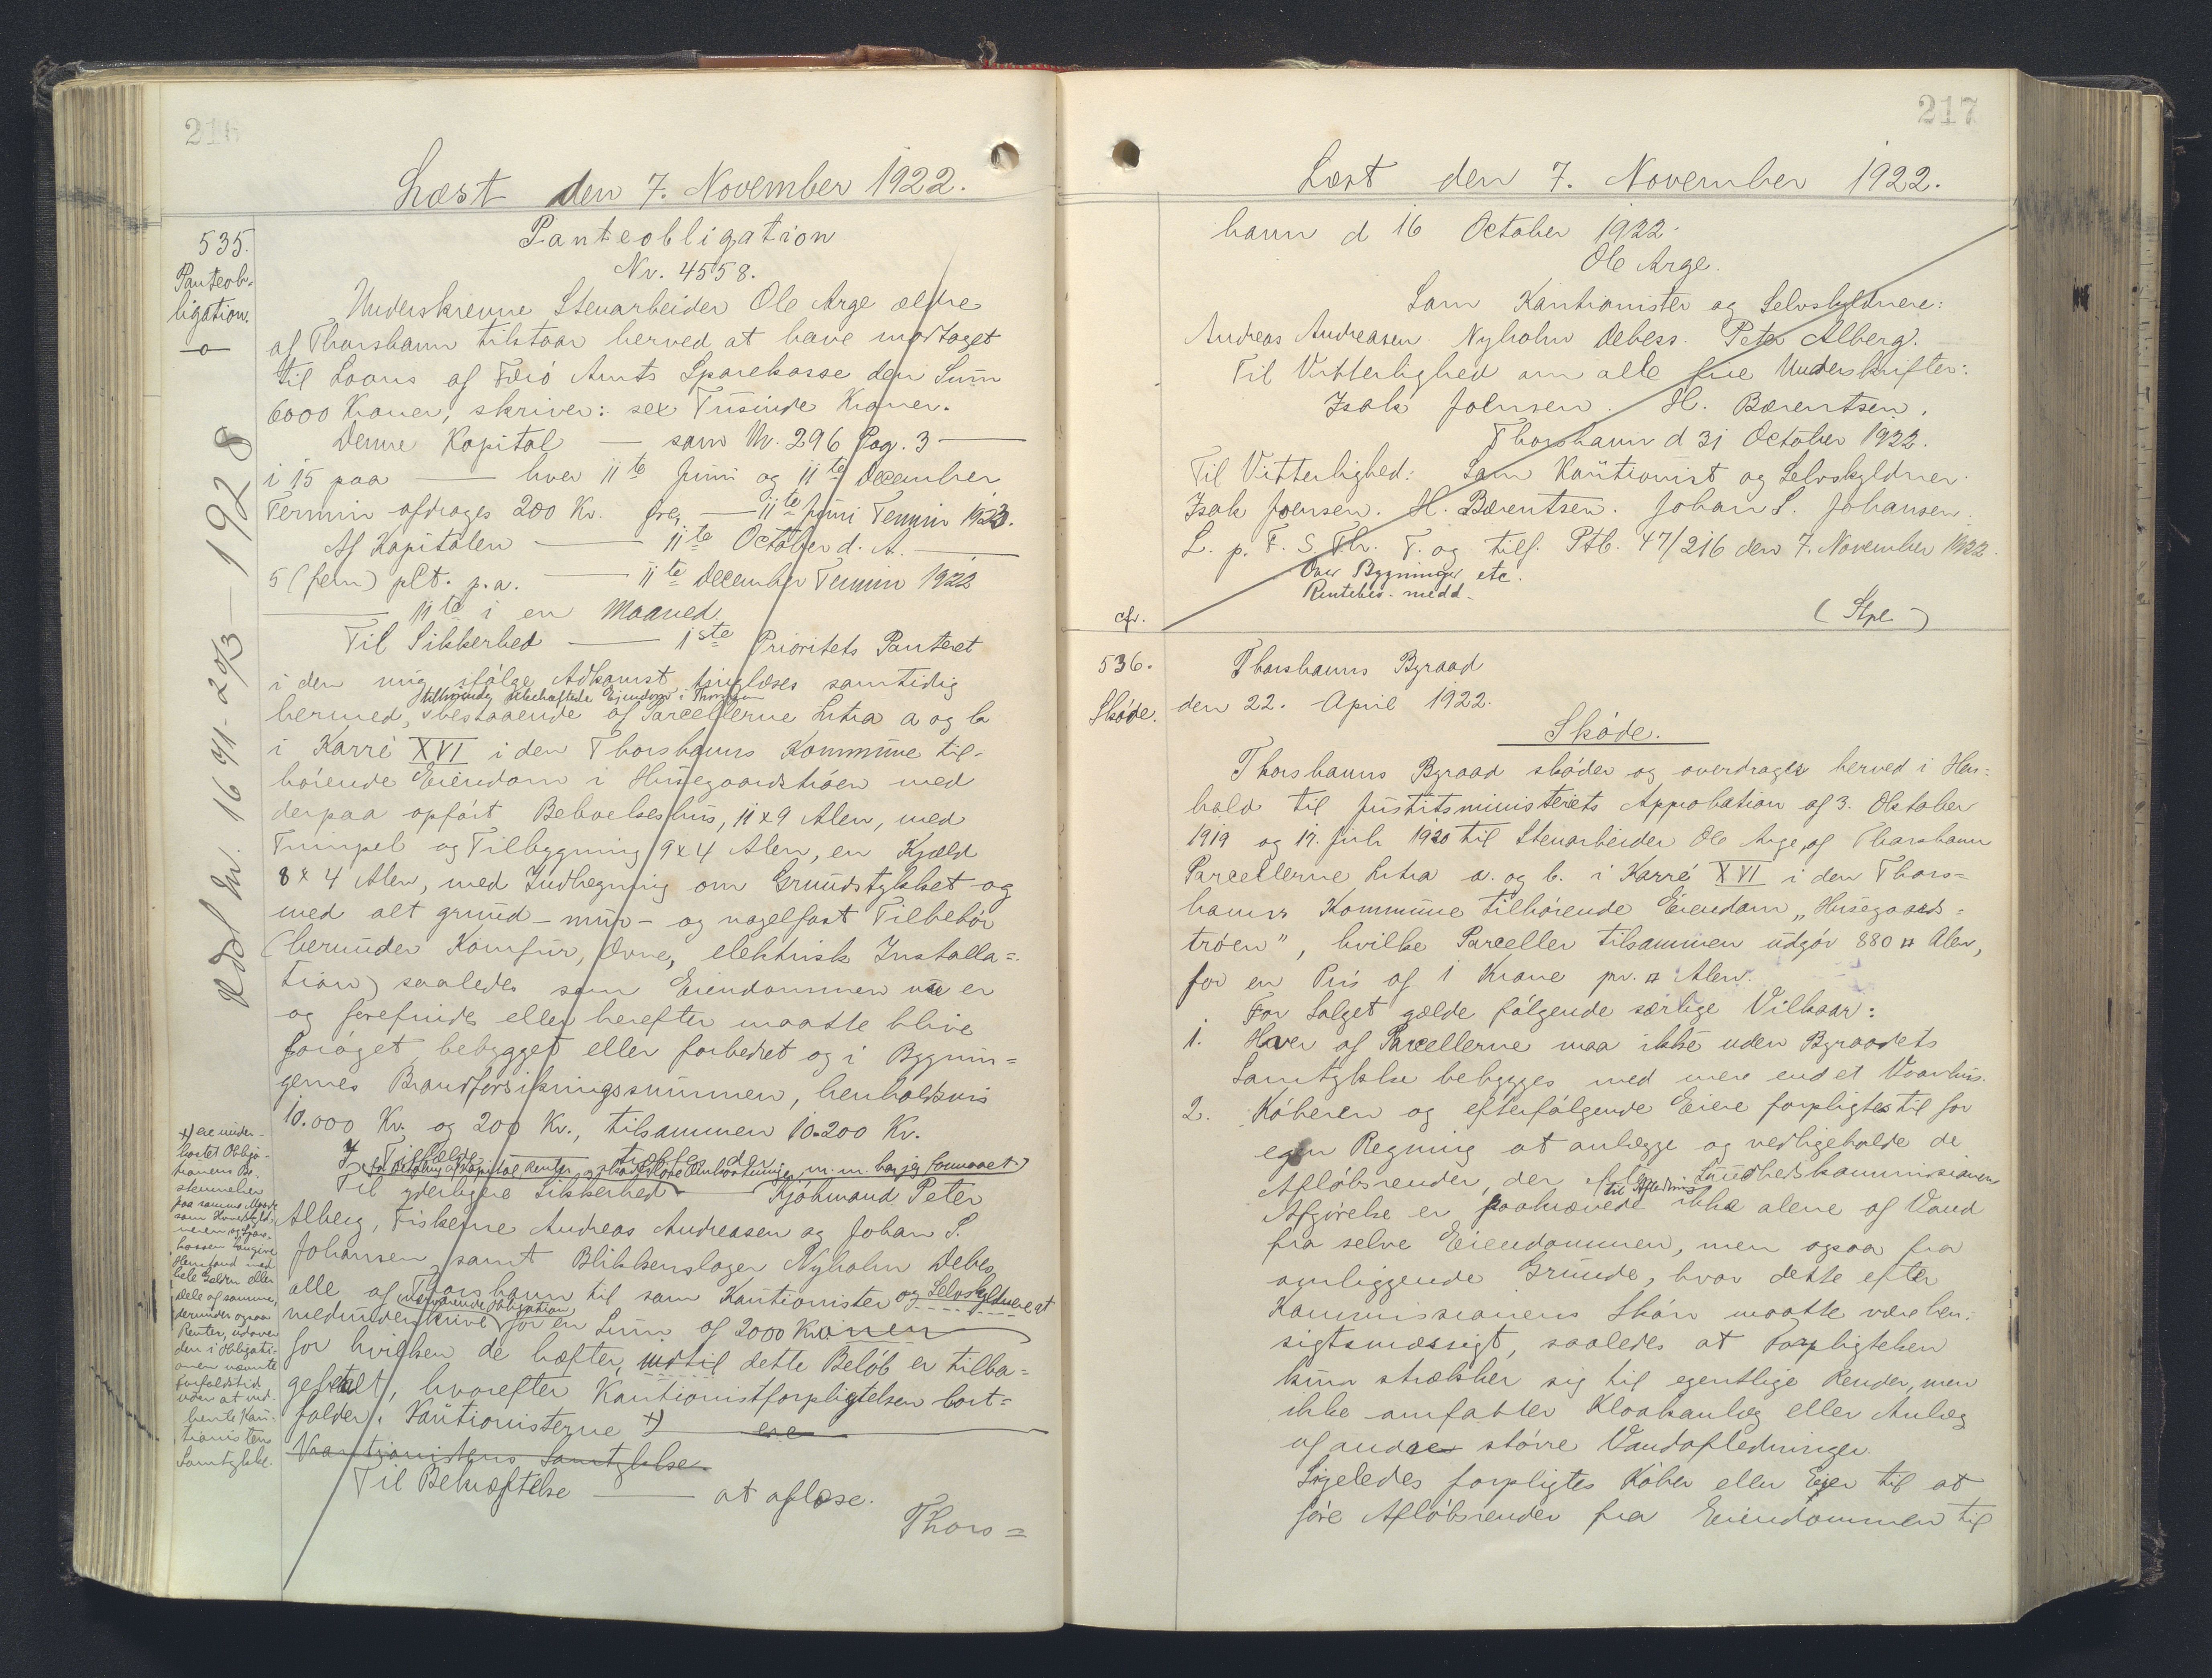 216
Læst den 7. November 1922.
535.
Panteob-
ligation.
Panteobligation
Nr. 4558.
Underskrevne Stenarbeider Ole Arge ældre
af Thorshavn tilstaar herved at have modtaget
til Laans af Færø Amts Sparekasse den Sum
6000 Kroner, skriver: sex Tusinde Kroner.
Denne Kapital — som Nr. 296 Pag. 3 —
i 15 paa — hver 11te Juni og 11te December
Termin afdrages 200 Kr. — 11te Juni Termin 1923.
Af Kapitalen — 11te October d. A. —
5 (fem) pCt. p.a. — 11te December Termin 1922
— 11te i en Maaned
Til Sikkerhed — 1ste Prioritets Panteret
i den mig ifølge Adkomst tinglæses samtidig
tilhørende ubehæftede Eiendom i Thorshavn
hermed, bestaaende af Parcellerne Litra a og b
i Karré XVI i den Thorshavns Kommune til-
hørende Eiendom i Husegaardstrøen med
derpaa opført Beboelseshus, 11 x 9 Alen, med
Trimpel og Tilbygning 9 x 4 Alen, en Kjæld
8 x 4 Alen, med Indhegning om Grundstykket og
med alt grund- mur- og nagelfast Tilbehør
(herunder Komfur, Ovne, elektrisk Installa=
tion) saaledes som Eiendommen nu er
og forefindes eller herefter maatte blive
forøget, bebygget eller forbedret og i Bygnin=
gernes Brandforsikringssummer, henholdsvis
10.000 Kr. og 200 Kr., tilsammen 10.200 Kr.
I Tilfælde
m.m. har jeg formaaet
Til yderligere Sikkerhed — Kjøbmand Peter
Alberg, Fiskerne Andreas Andreasen og Johan S.
Johansen samt Blikkenslager Nyholm Debes
alle af Thorshavn til som Kautionister og Selvskyldnere at
nærværende Obligation
medunderskrive for en Sum af 2000 Kroner
for hvilken de hæfter, indtil dette Beløb er tilba=
gebetalt, hvorefter Kautionistforpligtelsen bort=
falder. Kautionisterne x) ere
Kautionistens Samtykkelse
Til Bekræftelse — at aflæse.
Thors=
x) ere under-
kastet Obliga-
tionens Be-
stemmelser
paa samme Maade
som Hovedskyld-
neren og Spare-
kassen kan give
Henstand med
hele Gælden eller
Dele af samme,
derunder ogsaa
Renter, udover
den i Obligati-
onen nævnte
Forfaldstid
uden at ind-
hente Kau-
tionisten
Samtykke.
Nr. 1641 - 29/3 - 1928
217
Læst den 7. November 1922.
havn d 16 October 1922.
Ole Arge.
Som Kautionister og Selvskyldnere:
Andreas Andreasen. Nyholm Debess. Peter Alberg.
Til Vitterlighed om alle fire Underskrifter:
Isak Joensen. H. Bærentsen.
Thorshavn d 31 October 1922.
Til Vitterlighed: Som Kautionist og Selvskyldner.
Isak Joensen. H. Bærentsen. Johan S. Johansen.
L. p. F. S. Th. T. og tilf. Ptb. 47/216 den 7. November 1922.
Over Bygninger etc.
medd.
cfr.
(Stpl.)
536.
Skøde.
Thorshavns Byraad
den 22. April 1922.
Skøde.
Thorshavns Byraad skøder og overdrager herved i Hen:
hold til Justitsministeriets Approbation af 3. Oktober
1919 og 17. Juli 1920 til Stenarbeider Ole Arge, af Thorshavn
Parcellerne Litra a. og b. i Karré XVI i den Thors=
havns Kommune tilhørende Eiendom „Husegaards=
trøen", hvilke Parceller tilsammen udgør 880 □ Alen,
for en Pris af 1 Krone pr. □ Alen.
For Salget gælde følgende særlige Vilkaar:
1. Hver af Parcellerne maa ikke uden Byraadets
Samtykke bebygges med mere end et Vaanhus.
2. Køberen og efterfølgende Eiere forpligtes til for
egen Regning at anlægge og vedligeholde de
Afløbsrender, der efter Sundhedskommissionens
til Afledning
Afgørelse er paakrævede ikke alene af Vand
fra selve Eiendommen, men ogsaa fra
omliggende Grunde, hvor dette efter
Kommissionens Skøn maatte være hen:
sigtsmæssigt, saaledes at Forpligtelsen
kun strækker sig til egentlige Render, men
ikke omfatter Kloakanlæg eller Anlæg
af andre større Vandafledninger.
Ligeledes forpligtes Køber eller Ejer til at
føre Afløbsrender fra Eiendommen til